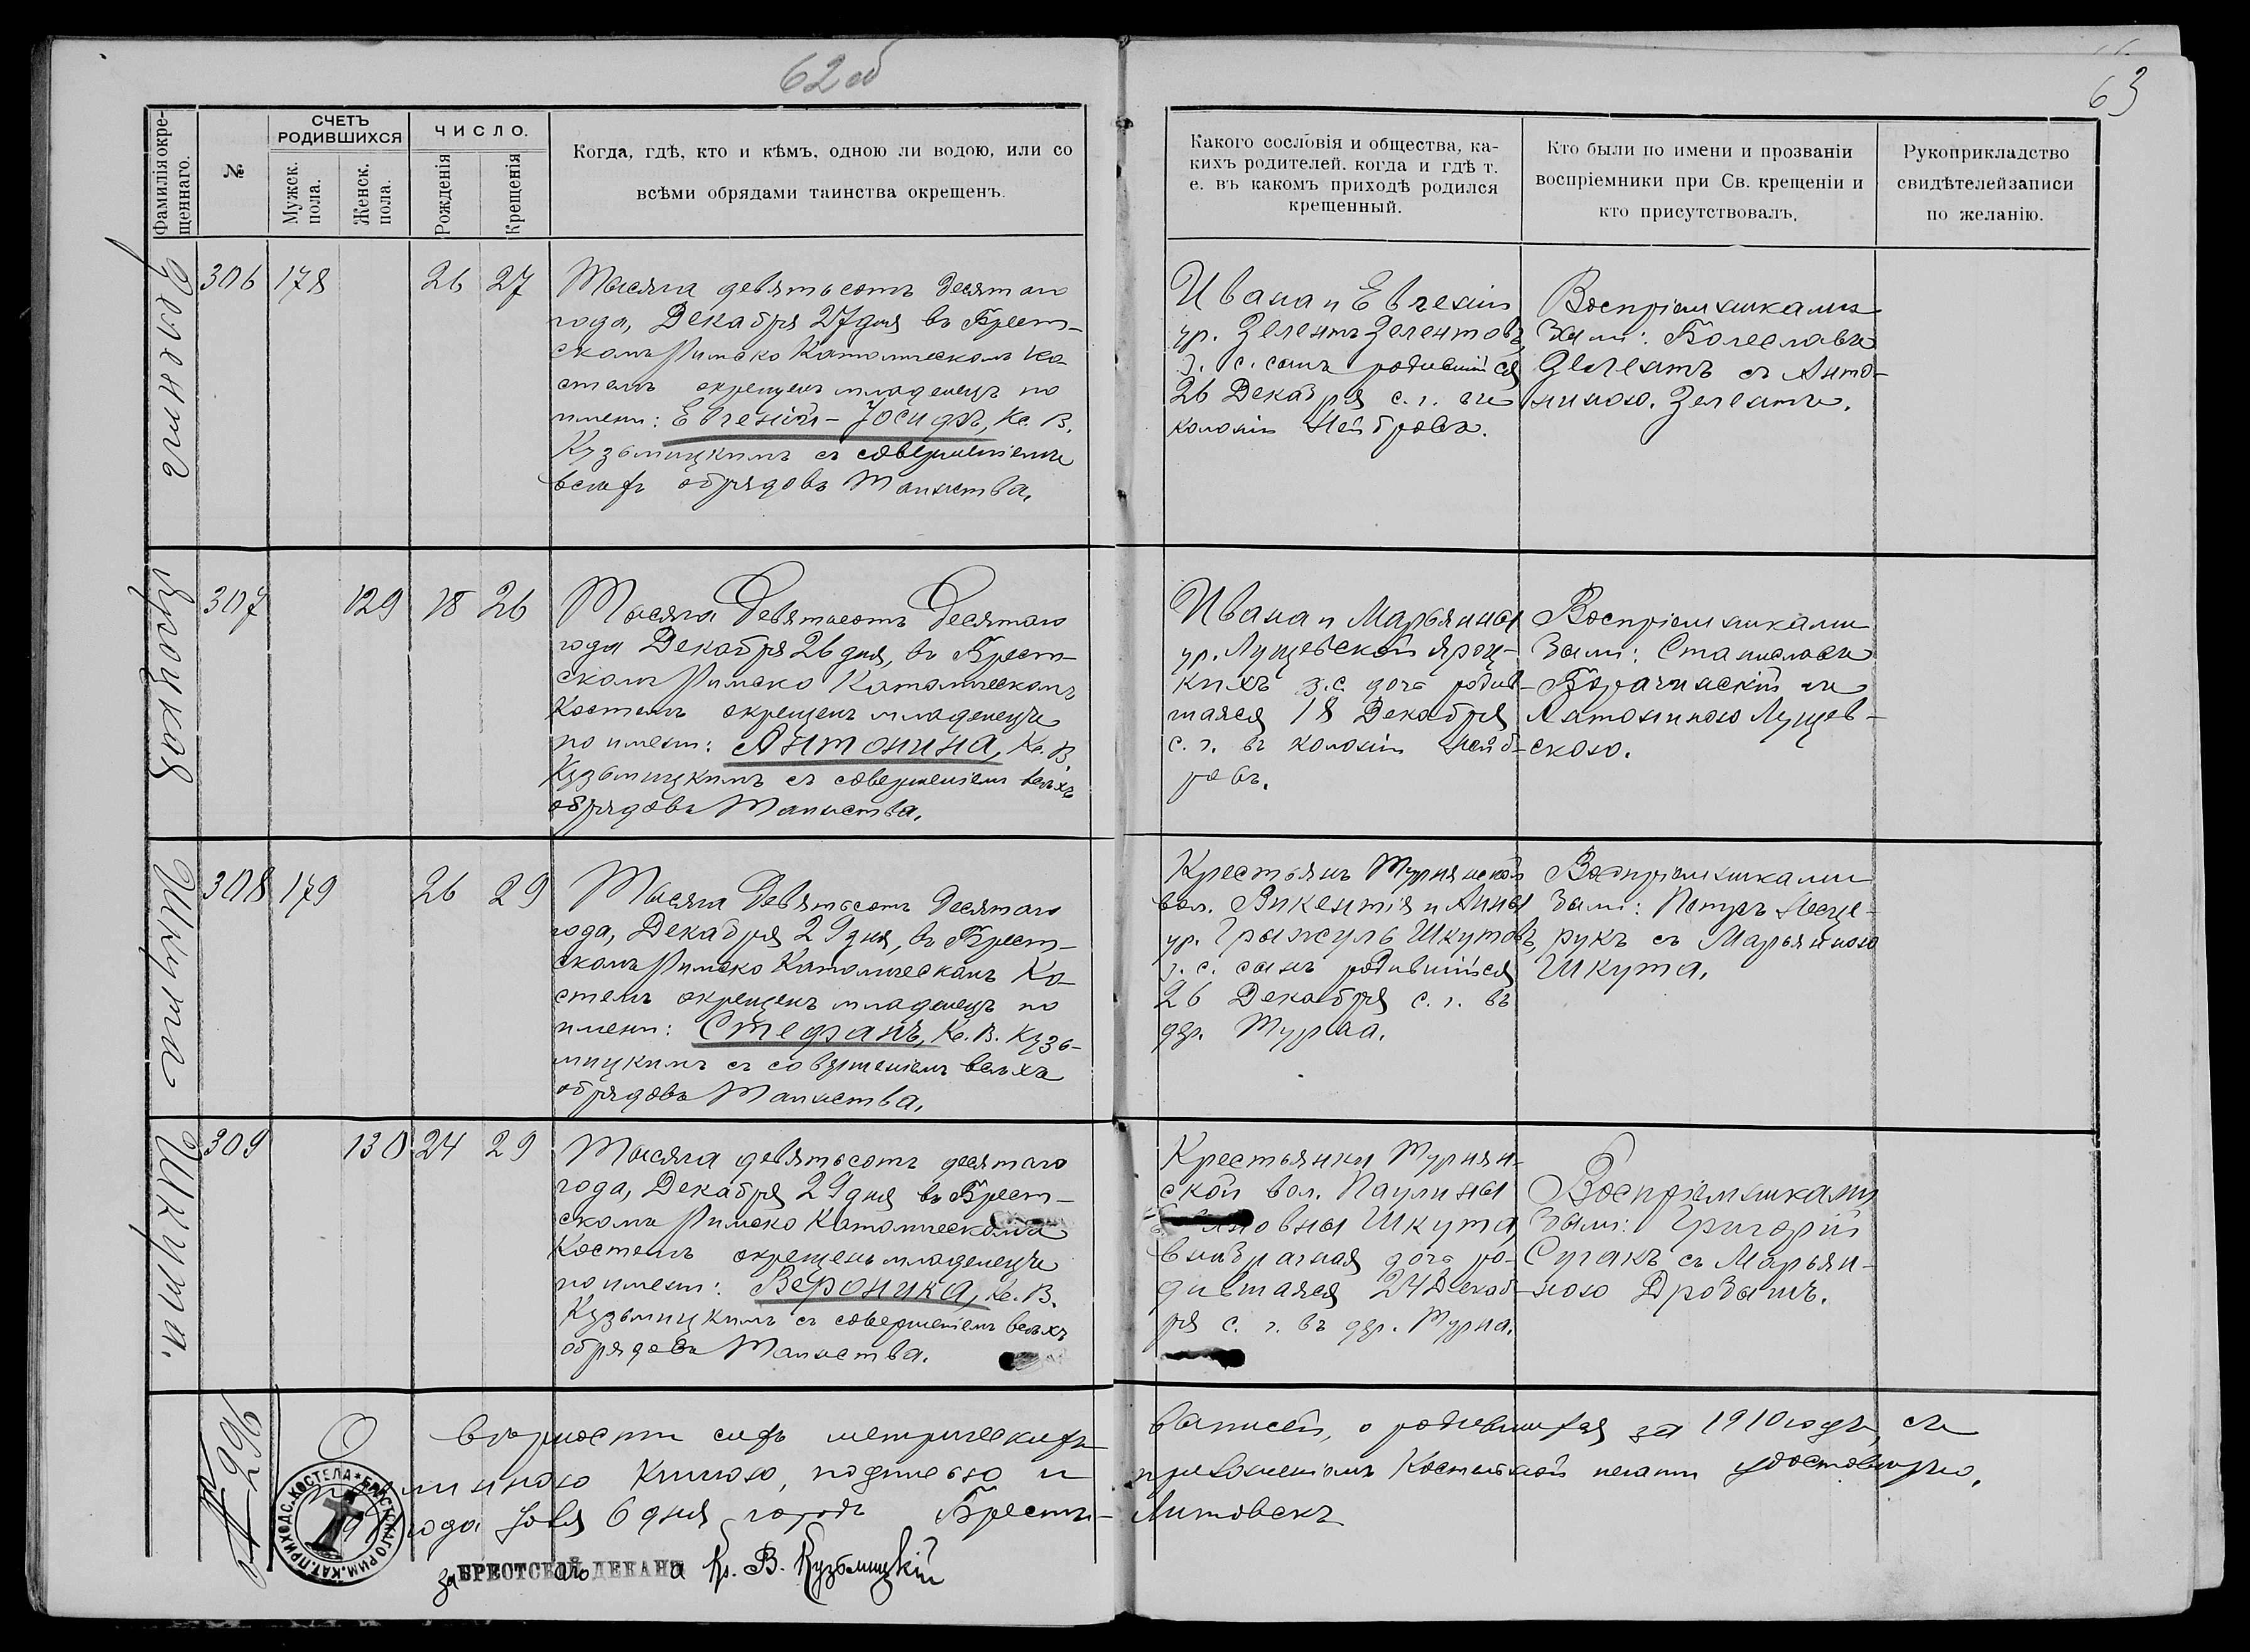 62 об
63
Фамилія окре-
щеннаго.
№
СЧЕТЪ
РОДИВШИХСЯ
Мужск.
пола.
Женск.
пола.
ЧИСЛО.
Рожденія
Крещенія
Когда, гдѣ, кто и кѣмъ, одною ли водою, или со
всѣми обрядами таинства окрещенъ.
Какого сословія и общества, ка-
кихъ родителей. когда и гдѣ т.
е. въ какомъ приходѣ родился
крещенный.
Кто были по имени и прозванію
воспріемники при Св. крещеніи и
кто присутствовалъ.
Рукоприкладство
свидѣтелей записи
по желанію.
Зелентъ
306 178 26 27
Тысяча девятьсотъ десятаго
года, Декабря 27 дня въ Брест-
скомъ Римско Католическомъ Ко-
стелѣ окрещенъ младенецъ по
имени: Евгеній-Іосифъ, Кс. В.
Кузьмицкимъ съ совершеніемъ
всѣхъ обрядовъ Таинства.
Ивана и Евгеніи
ур. Зелентъ Зелентовъ,
з. с. сынъ родившійся
26 Декабря с. г. въ
колоніи Нейбровъ.
Воспріемниками
были: Болеславъ
Зелентъ съ Анто-
ниною Зелентъ.
Яроцкая
307 129 18 26
Тысяча Девятьсотъ Десятаго
года Декабря 26 дня, въ Брест-
скомъ Римско Католическомъ
Костелѣ окрещенъ младенецъ
по имени: Антонина, Кс. В.
Кузьмицкимъ съ совершеніемъ всѣхъ
обрядовъ Таинства.
Ивана и Марьянны
ур. Лущевской Яроц-
кихъ з. с. дочь родив-
шаяся 18 Декабря
с. г. въ колоніи Нейб-
ровъ.
Воспріемниками
были: Станиславъ
съ
Антониною Лущев-
скою.
Шкута
308 179 26 29
Тысяча Девятьсотъ Десятаго
года, Декабря 29 дня, въ Брест-
скомъ Римско Католическомъ Ко-
стелѣ окрещенъ младенецъ по
имени: Стефанъ, Кс. В. Кузь-
мицкимъ съ совершеніемъ всѣхъ
обрядовъ Таинства.
Крестьянъ Турнянской
вол. Викентія и Анны
ур. Грыжуль Шкутовъ,
з. с. сынъ родившійся
26 Декабря с. г. въ
дер. Турна.
Воспріемниками
были: Петръ Неще-
рукъ съ Марьянною
Шкута.
Шкута.
309 130 24 29
Тысяча девятьсотъ десятаго
года, Декабря 29 дня въ Брест-
скомъ Римско Католическомъ
Костелѣ окрещенъ младенецъ
по имени: Вероника, Кс. В.
Кузьмицкимъ съ совершеніемъ всѣхъ
обрядовъ Таинства.
Крестьянки Турнян-
ской вол. Паулины
Шкута,
внѣбрачная дочь ро-
дившаяся 24 Декаб-
ря с. г. въ дер. Турна.
Воспріемниками
были: Григорій
Сугакъ съ Марьян-
ною Дробышъ.
№ 296
О вѣрности сихъ метрическихъ записей, о родившихся за 1910 годъ, съ
подлинною Книгою, подписью и приложеніемъ Костельной печати удостовѣряю.
года 6 дня городъ Брестъ-Литовскъ
БРЕСТСКАГО РИМ. КАТ. ПРИХОДС. КОСТЕЛА
за БРЕСТСКАГО ДЕКАНА Кс. В. Кузьмицкій